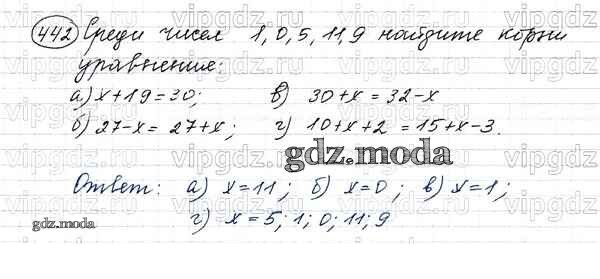 442 Среди чисел 1, 0, 5, 11, 9 найдите корни
уравнения:
а) x+19=30; в) 30+x=32-x
б) 27-x=27+x; г) 10+x+2=15+x-3.
gdz.moda
Ответ: а) x=11; б) x=0; в) x=1;
gdz.moda
г) x=5; 1; 0; 11; 9
vipgdz